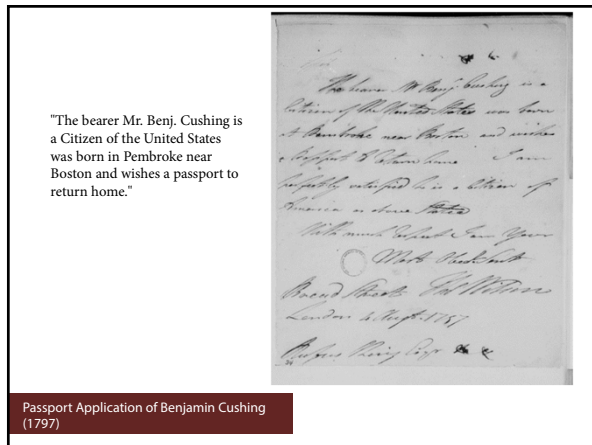 "The bearer Mr. Benj. Cushing is
a Citizen of the United States
was born in Pembroke near
Boston and wishes a passport to
return home."
The bearer Mr Benj. Cushing is a
Citizen of the United States was born
at Pembroke near Boston and wishes
a Passport to return home I am
perfectly satisfied he is a Citizen of
America as above Stated
With much respect I am Your
Most Obed. Servt
Broad Street Thos Wilson
London 4 Augt. 1797
Rufus King Esqr
Passport Application of Benjamin Cushing
(1797)